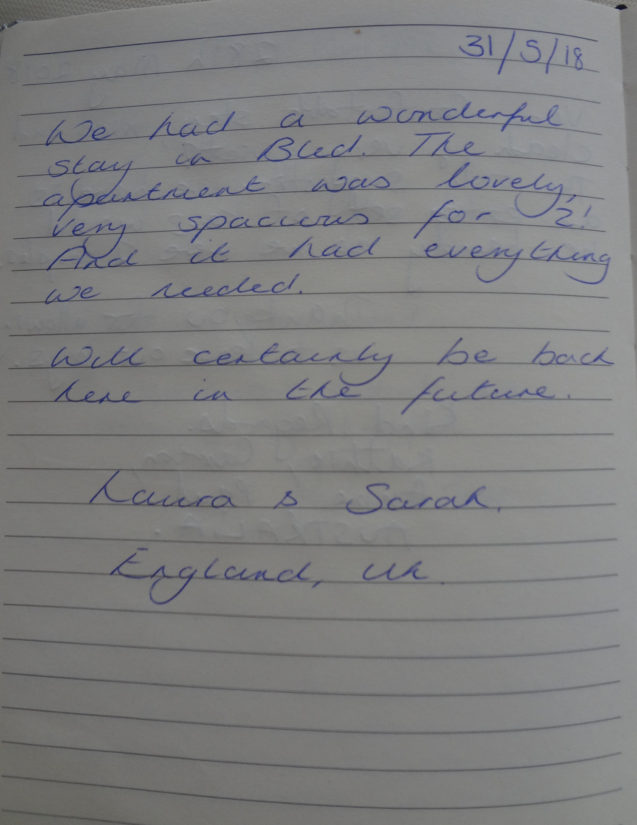 31/5/18
We had a wonderful
stay in Bled. The
apartment was lovely,
very spacious for 2!
And it had everything
we needed.
Will certainly be back
here in the future.
Laura & Sarah.
England, UK.